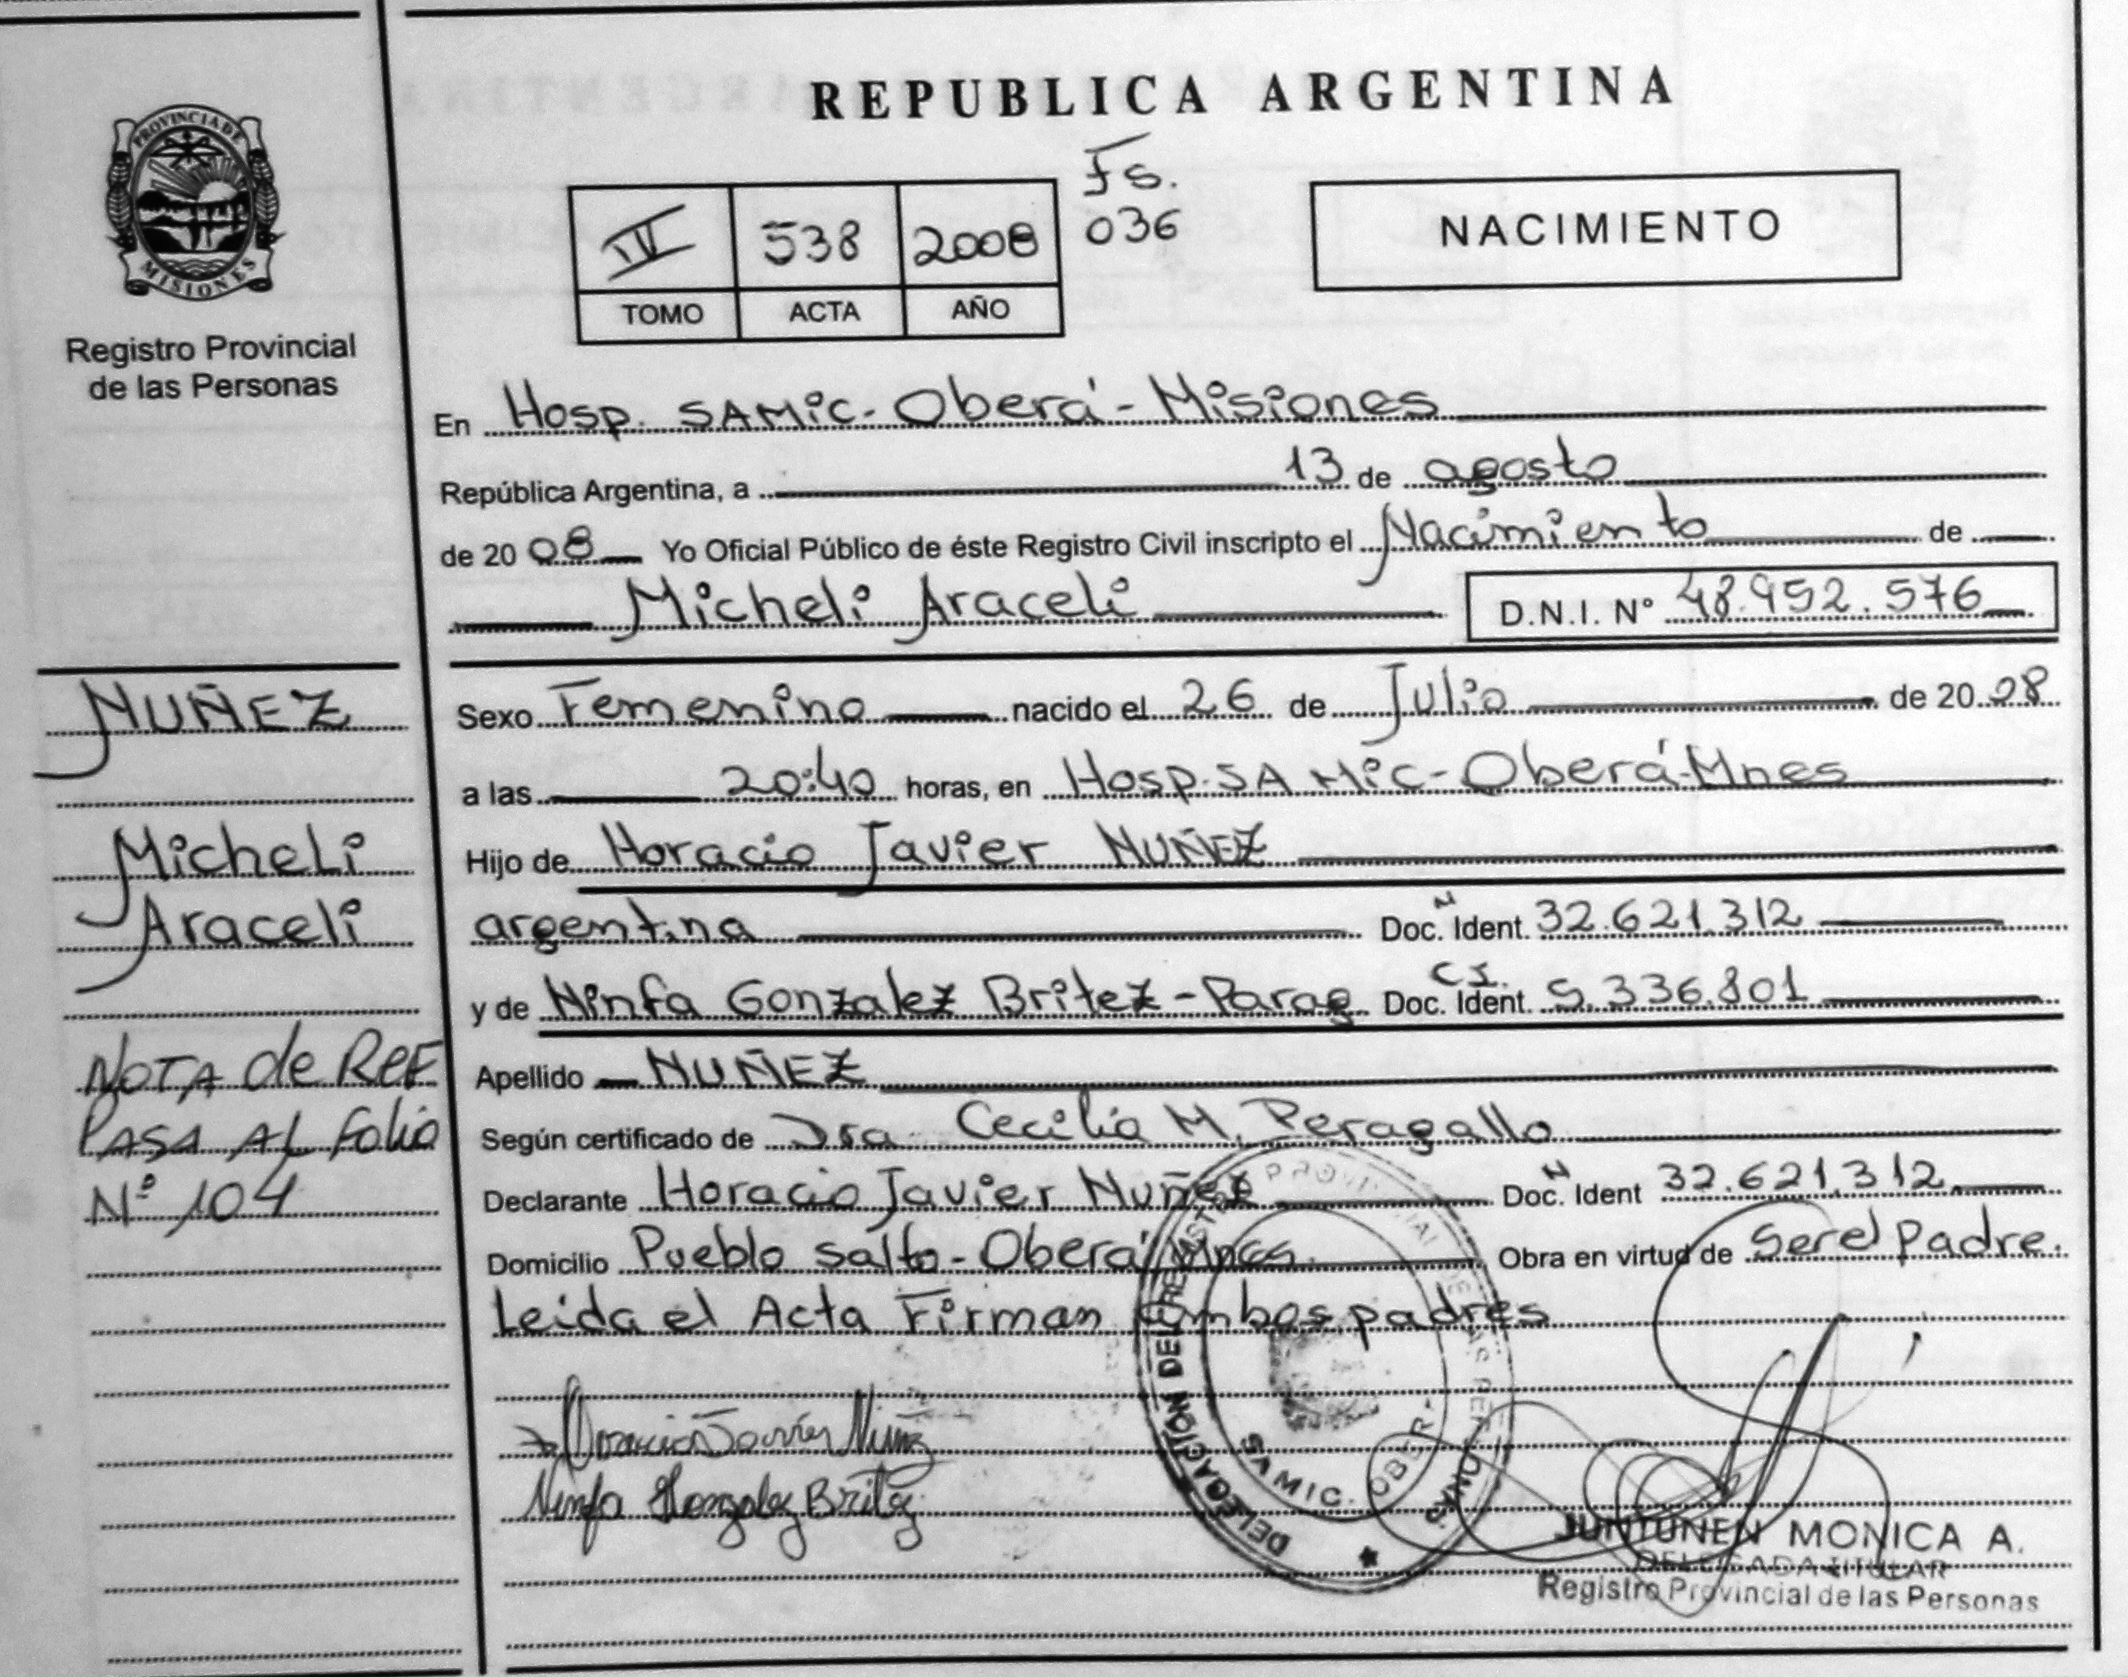 PROVINCIA DE
MISIONES
Registro Provincial
de las Personas
REPUBLICA ARGENTINA
Fs.
036
IV 538 2008
TOMO ACTA AÑO
NACIMIENTO
En Hosp. SAMic - Oberá - Misiones
República Argentina, a 13 de agosto
de 20 08 Yo Oficial Público de éste Registro Civil inscripto el Nacimiento de
Micheli Araceli D.N.I. Nº 48.952.576
NUÑEZ
Micheli
Araceli
NOTA de REF
PASA AL Folio
Nº 104
Sexo Femenino nacido el 26 de Julio de 20 08
a las 20:40 horas, en Hosp. SAMic - Oberá - Mnes
Hijo de Horacio Javier NUÑEZ
argentina Doc. Ident. 32.621.312
y de Ninfa Gonzalez Britez - Parag Doc. Ident. C.I. 5.336.801
Apellido NUÑEZ
Según certificado de Dra Cecilia M. Peragallo
Declarante Horacio Javier Nuñez Doc. Ident 32.621.312
Domicilio Pueblo Salto - Oberá Mnes. Obra en virtud de Ser el Padre.
Leida el Acta Firman ambos padres
Horacio Javier Nuñez
Ninfa Gonzalez Britez
DELEGACIÓN DEL REGISTRO PROVINCIAL DE LAS PERSONAS
SAMIC. OBERA
JUNTUNEN MONICA A.
DELEGADA TITULAR
Registro Provincial de las Personas